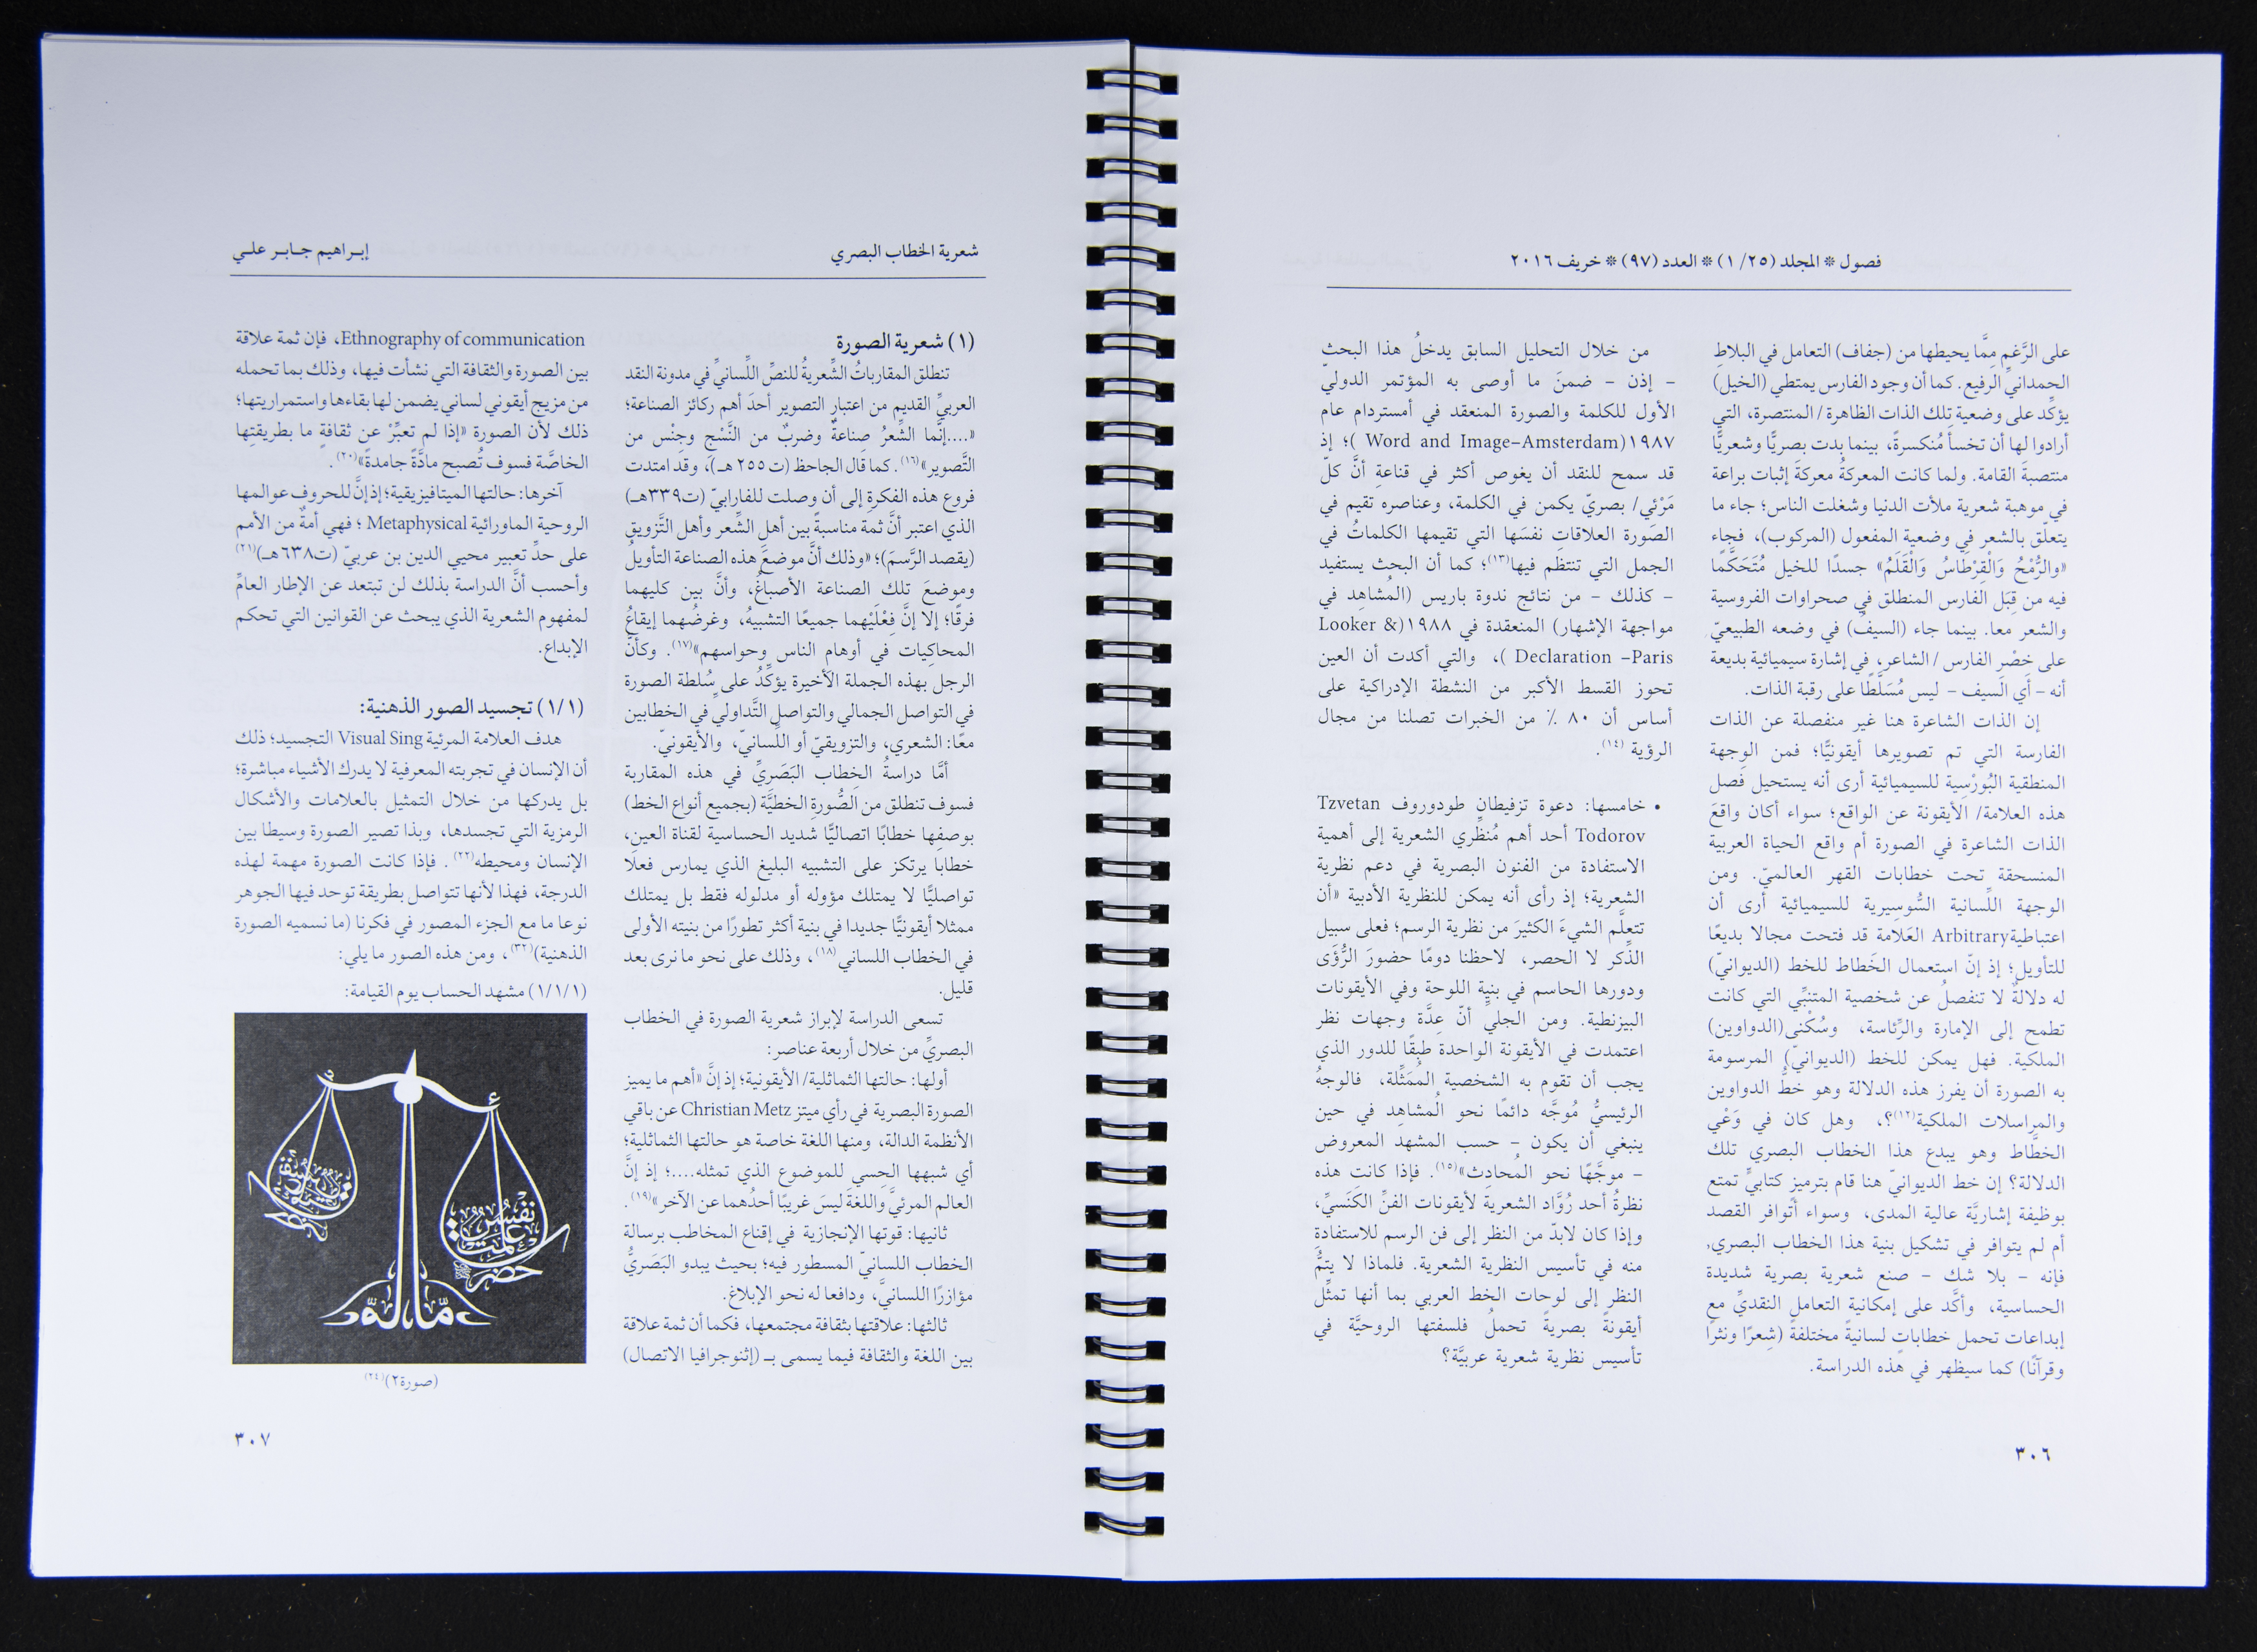 فصول * المجلد (٢٥/ ١) * العدد (٩٧) * خريف ٢٠١٦
على الرَّغم مِمَّا يحيطها من (جفاف) التعامل في البلاطِ
الحمدانيِّ الرفيع. كما أن وجود الفارس يمتطي (الخيل)
يؤكِّد على وضعية تِلك الذات الظاهرة/ المنتصرة، التي
أرادوا لها أن تخسأ مُنكسرةً، بينما بدت بصريًّا وشعريًّا
منتصبةَ القامة. ولما كانت المعركةُ معركةَ إثبات براعة
في موهبة شعرية ملأت الدنيا وشغلت الناس؛ جاء ما
يتعلّق بالشعر في وضعية المفعول (المركوب)، فجاء
«والرُّمْحُ وَالْقِرْطَاسُ وَالْقَلَمُ» جسدًا للخيل مُتَحَكَّمًا
فيه من قِبَل الفارس المنطلق في صحراوات الفروسية
والشعر معا. بينما جاء (السيفُ) في وضعه الطبيعيّ
على خِصْرِ الفارس / الشاعر، في إشارة سيميائية بديعة
أنه – أي السيف – ليس مُسَلَّطًا على رقبة الذات.
إن الذات الشاعرة هنا غير منفصلة عن الذات
الفارسة التي تم تصويرها أيقونيًّا؛ فمن الوجهة
المنطقية البُورْسِية للسيميائية أرى أنه يستحيل فصل
هذه العلامة/ الأيقونة عن الواقع؛ سواء أكان واقعَ
الذات الشاعرة في الصورة أم واقع الحياة العربية
المنسحقة تحت خطابات القهر العالميّ. ومن
الوجهة اللِّسانية السُّوسِيرية للسيميائية أرى أن
اعتباطيةArbitrary العَلامة قد فتحت مجالا بديعًا
للتأويل؛ إذ إنّ استعمال الخَطاط للخط (الديوانيّ)
له دلالةٌ لا تنفصلُ عن شخصية المتنبِّي التي كانت
تطمح إلى الإمارة والرِّئاسة، وسُكْنى(الدواوين)
الملكية. فهل يمكن للخط (الديوانيّ) المرسومة
به الصورة أن يفرز هذه الدلالة وهو خطُّ الدواوين
والمراسلات الملكية(١٢)؟، وهل كان في وَعْي
الخطَّاط وهو يبدع هذا الخطاب البصري تلك
الدلالة؟ إن خط الديوانيّ هنا قام بترميزٍ كتابيٍّ تمتع
بوظيفة إشاريَّة عالية المدى، وسواء أتَوافر القصد
أم لم يتوافر في تشكيل بنية هذا الخطاب البصري،
فإنه – بلا شك – صنع شعرية بصرية شديدة
الحساسية، وأكَّد على إمكانية التعامل النقديِّ مع
إبداعات تحمل خطاباتٍ لسانيةً مختلفةً (شِعرًا ونثرًا
وقرآنًا) كما سيظهر في هذه الدراسة.
من خلال التحليل السابق يدخلُ هذا البحث
– إذن – ضمنَ ما أوصى به المؤتمر الدوليّ
الأول للكلمة والصورة المنعقد في أمستردام عام
١٩٨٧(Word and Image–Amsterdam )؛ إذ
قد سمح للنقد أن يغوص أكثر في قناعةِ أنَّ كلّ
مَرْئي/ بصريّ يكمن في الكلمة، وعناصره تقيم في
الصّورة العلاقاتِ نفسَها التي تقيمها الكلماتُ في
الجمل التي تنتظم فيها(١٣)؛ كما أن البحث يستفيد
– كذلك – من نتائج ندوة باريس (المُشاهِد في
مواجهة الإشهار) المنعقدة في ١٩٨٨(Looker &
Declaration –Paris )، والتي أكدت أن العين
تحوز القسط الأكبر من النشطة الإدراكية على
أساس أن ٨٠ ٪ من الخبرات تصلنا من مجال
الرؤية (١٤).
• خامسها: دعوة تزفيطان طودوروف Tzvetan
Todorov أحد أهم مُنظِّري الشعرية إلى أهمية
الاستفادة من الفنون البصرية في دعم نظرية
الشعرية؛ إذ رأى أنه يمكن للنظرية الأدبية «أن
تتعلَّم الشيءَ الكثيرَ من نظرية الرسم؛ فعلى سبيل
الذِّكر لا الحصر، لاحظنا دومًا حضورَ الرُّؤَى
ودورها الحاسم في بنية اللوحة وفي الأيقونات
البيزنطية. ومن الجليِّ أنّ عِدَّة وجهات نظر
اعتمدت في الأيقونة الواحدة طبقًا للدور الذي
يجب أن تقوم به الشخصية المُمَثِّلة، فالوجهُ
الرئيسيُّ مُوجَّه دائمًا نحو المُشاهِد في حين
ينبغي أن يكون – حسب المشهد المعروض
– موجَّهًا نحو المُحادِث»(١٥). فإذا كانت هذه
نظرةُ أحد رُوَّاد الشعرية لأيقونات الفنِّ الكَنَسيِّ،
وإذا كان لابدّ من النظر إلى فن الرسم للاستفادةِ
منه في تأسيس النظرية الشعرية. فلماذا لا يتمُّ
النظر إلى لوحات الخط العربي بما أنها تمثّل
أيقونةً بصريةً تحملُ فلسفتها الروحيَّة في
تأسيس نظرية شعرية عربيَّة؟
٣٠٦
شعرية الخطاب البصري
إبـراهيم جـابـر علـي
(١) شعرية الصورة
تنطلق المقارباتُ الشِّعريةُ للنصِّ اللِّسانيِّ في مدونة النقد
العربيِّ القديم من اعتبارِ التصوير أحدَ أهم ركائز الصناعة؛
«....إنَّما الشِّعرُ صناعةٌ وضربٌ من النَّسْج وجِنْس من
التَّصوير»(١٦). كما قال الجاحظ (ت ٢٥٥ هـ)، وقد امتدت
فروع هذه الفكرةِ إلى أن وصلت للفارابيّ (ت٣٣٩هـ)
الذي اعتبر أنَّ ثمة مناسبةً بين أهلِ الشِّعر وأهل التَّزويقِ
(يقصد الرَّسمَ)؛ «وذلك أنَّ موضعَ هذه الصناعة التأويلُ
وموضعَ تلك الصناعة الأصباغُ، وأنَّ بين كليهما
فرقًا؛ إلا إنَّ فِعْلَيْهما جميعًا التشبيهُ، وغرضُهما إيقاعُ
المحاكِيات في أوهام الناس وحواسهم»(١٧). وكأنَّ
الرجل بهذه الجملة الأخيرة يؤكِّدُ على سُلطة الصورة
في التواصل الجمالي والتواصل التَّداولي في الخطابين
معًا: الشعري، والتزويقيّ أو اللِّسانيّ، والأيقونيّ.
أمَّا دراسةُ الخِطاب البَصَريِّ في هذه المقاربة
فسوف تنطلق من الصُّورةِ الخطيَّة (بجميع أنواع الخط)
بوصفِها خطابًا اتصاليًّا شديد الحساسية لقناة العين،
خطابا يرتكز على التشبيه البليغ الذي يمارس فعلًا
تواصليًّا لا يمتلك مؤوله أو مدلوله فقط بل يمتلك
ممثلا أيقونيًّا جديدا في بنية أكثر تطورًا من بنيته الأولى
في الخطاب اللساني(١٨)، وذلك على نحو ما نرى بعد
قليل.
تسعى الدراسة لإبراز شعرية الصورة في الخطاب
البصريِّ من خلال أربعة عناصر:
أولها: حالتها التماثلية/ الأيقونية؛ إذ إنَّ «أهم ما يميز
الصورة البصرية في رأي ميتز Christian Metz عن باقي
الأنظمة الدالة، ومنها اللغة خاصة هو حالتها التماثلية؛
أي شبهها الحِسي للموضوع الذي تمثله....؛ إذ إنَّ
العالم المرئيَّ واللغةَ ليسَ غريبًا أحدُهما عن الآخر»(١٩).
ثانيها: قوتها الإنجازية في إقناع المخاطب برسالة
الخطاب اللسانيّ المسطور فيه؛ بحيث يبدو البَصَريُّ
مؤازرًا اللسانيَّ، ودافعا له نحو الإبلاغ.
ثالثها: علاقتها بثقافة مجتمعها، فكما أن ثمة علاقة
بين اللغة والثقافة فيما يسمى بـ (إثنوجرافيا الاتصال)
Ethnography of communication، فإن ثمة علاقة
بين الصورة والثقافة التي نشأت فيها، وذلك بما تحمله
من مزيج أيقوني لساني يضمن لها بقاءها واستمراريتها؛
ذلك لأن الصورة «إذا لم تعبِّرْ عن ثقافةٍ ما بطريقتِها
الخاصَّة فسوف تُصبح مادَّةً جامدةً»(٢٠).
آخرها: حالتها الميتافيزيقية؛ إذ إنَّ للحروف عوالمها
الروحية الماورائية Metaphysical ؛ فهي أمةٌ من الأمم
على حدِّ تعبير محيي الدين بن عربيّ (ت٦٣٨هـ)(٢١)
وأحسب أنَّ الدراسة بذلك لن تبتعد عن الإطار العامِّ
لمفهوم الشعرية الذي يبحث عن القوانين التي تحكم
الإبداع.
(١/١) تجسيد الصور الذهنية:
هدف العلامة المرئية Visual Sing التجسيد؛ ذلك
أن الإنسان في تجربته المعرفية لا يدرك الأشياء مباشرة؛
بل يدركها من خلال التمثيل بالعلامات والأشكال
الرمزية التي تجسدها، وبذا تصير الصورة وسيطا بين
الإنسان ومحيطه(٢٢) . فإذا كانت الصورة مهمة لهذه
الدرجة، فهذا لأنها تتواصل بطريقة توحد فيها الجوهر
نوعا ما مع الجزء المصور في فكرنا (ما نسميه الصورة
الذهنية)(٣٢)، ومن هذه الصور ما يلي:
(١/١/١) مشهد الحساب يوم القيامة:
نفس
علمت
حضر
(صورة٢)(٢٤)
٣٠٧